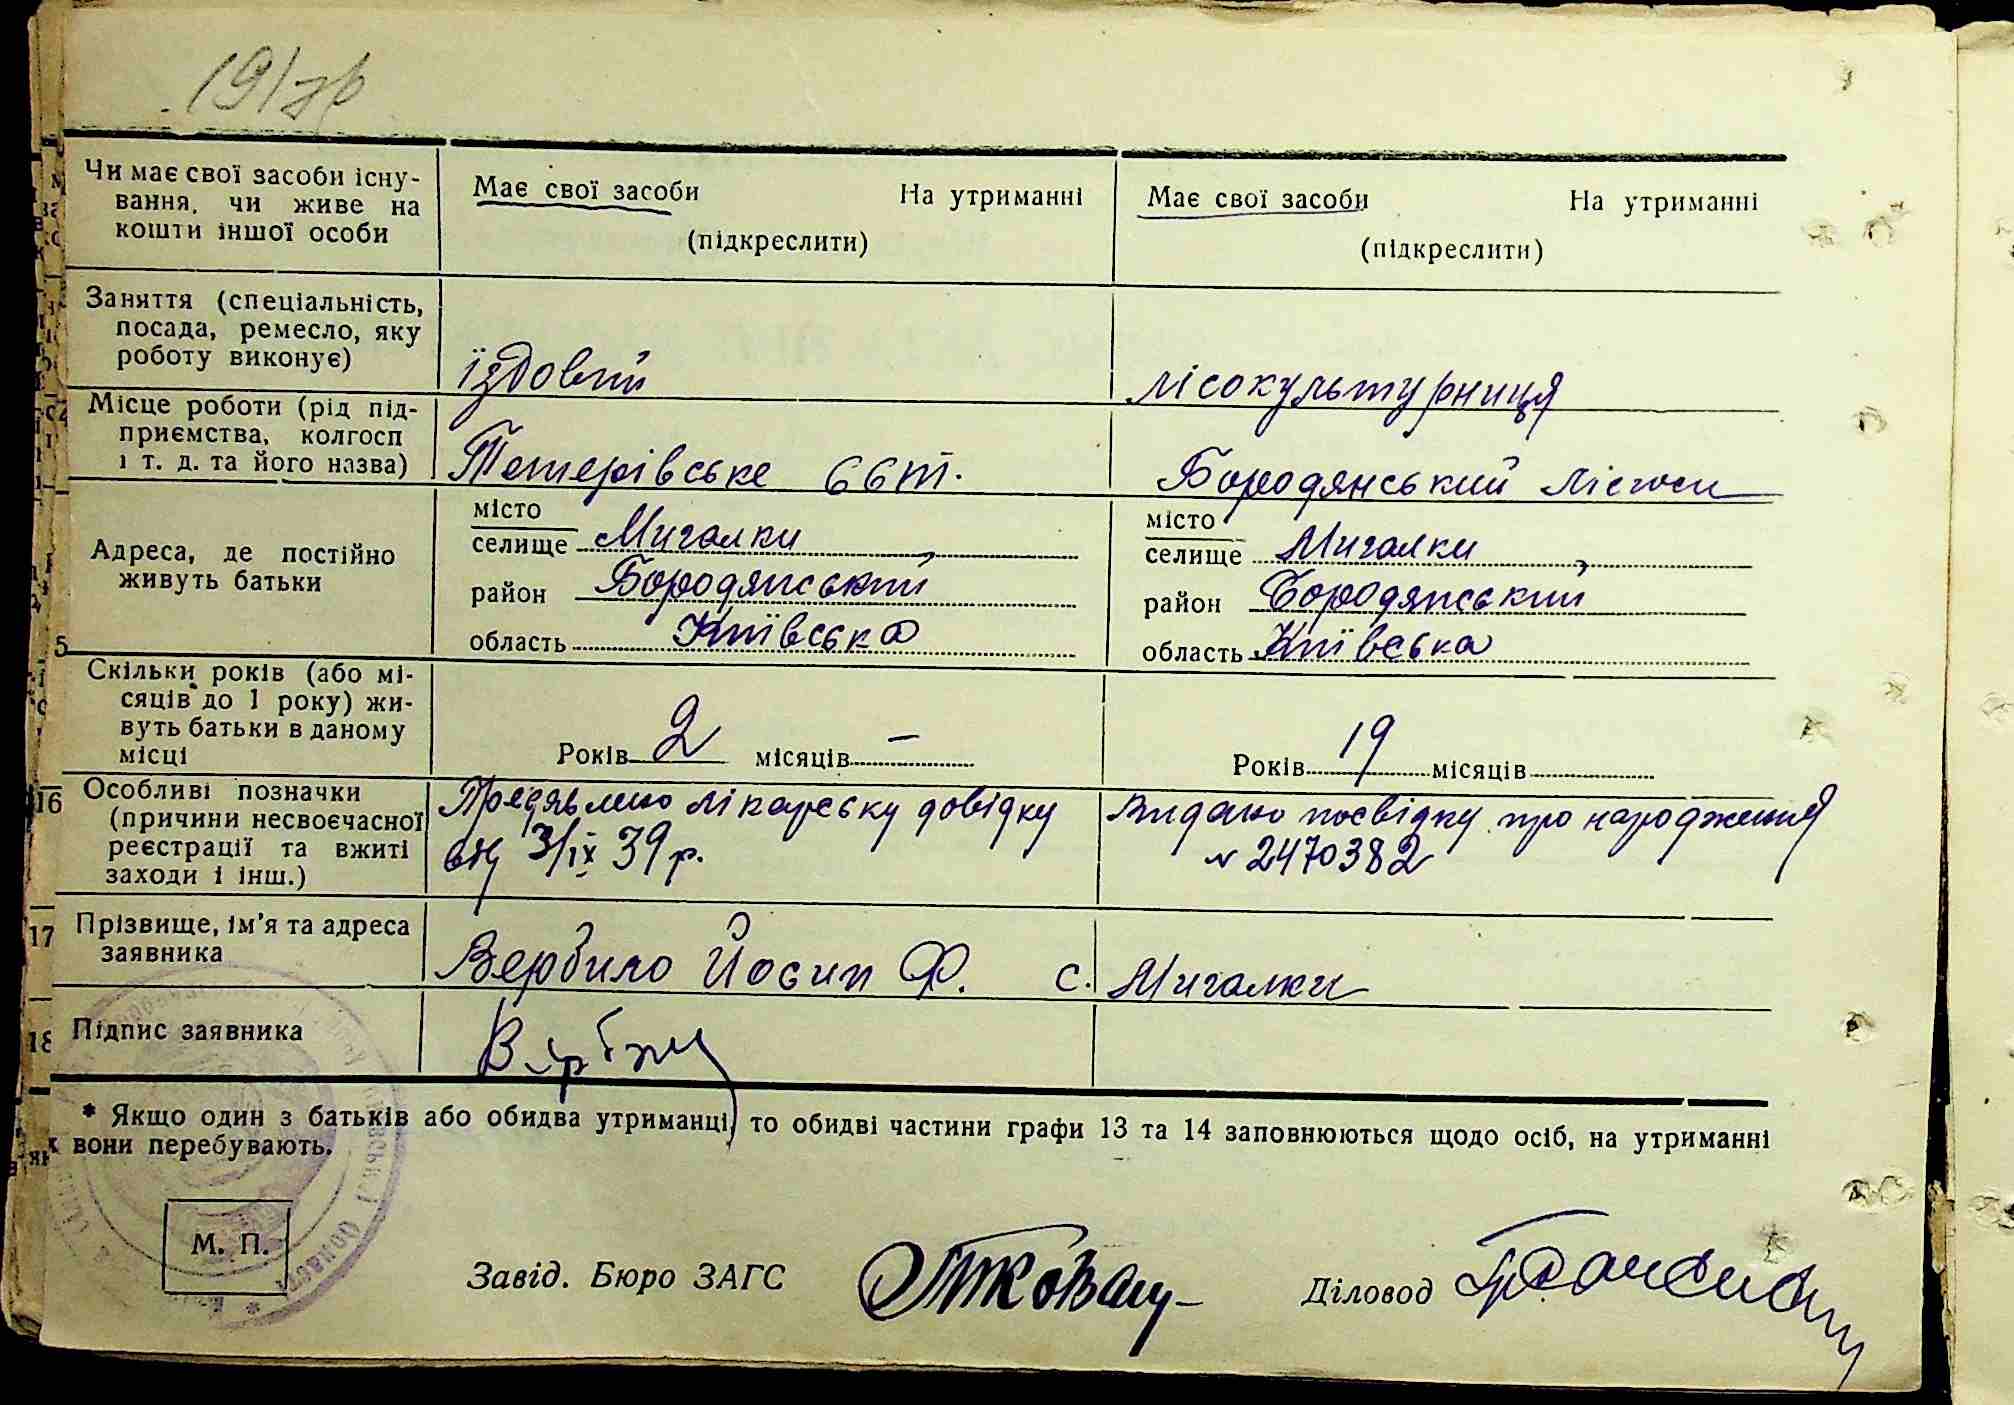 191 зв
Чи має свої засоби існу-
вання, чи живе на
кошти іншої особи
Має свої засоби На утриманні
(підкреслити)
Має свої засоби На утриманні
(підкреслити)
Заняття (спеціальність,
посада, ремесло, яку
роботу виконує)
їздовий
лісокультурниця
Місце роботи (рід під-
приємства, колгосп
і т. д. та його назва)
Тетерівське ббт.
Бородянський лісгосп
Адреса, де постійно
живуть батьки
місто
селище Мигалки
район Бородянський
область Київська
місто
селище Мигалки
район Бородянський
область Київська
Скільки років (або мі-
сяців до 1 року) жи-
вуть батьки в даному
місці
Років 2 місяців –
Років 19 місяців
16 Особливі позначки
(причини несвоєчасної
реєстрації та вжиті
заходи і інш.)
Предявлено лікарську довідку
від 3/IX 39 р.
Видано посвідку про народження
№ 2470382
17 Прізвище, ім'я та адреса
заявника
Вербило Йосип Ф. с. Мигалки
18 Підпис заявника
* Якщо один з батьків або обидва утриманці, то обидві частини графи 13 та 14 заповнюються щодо осіб, на утриманні
як вони перебувають.
М. П.
Завід. Бюро ЗАГС
Діловод